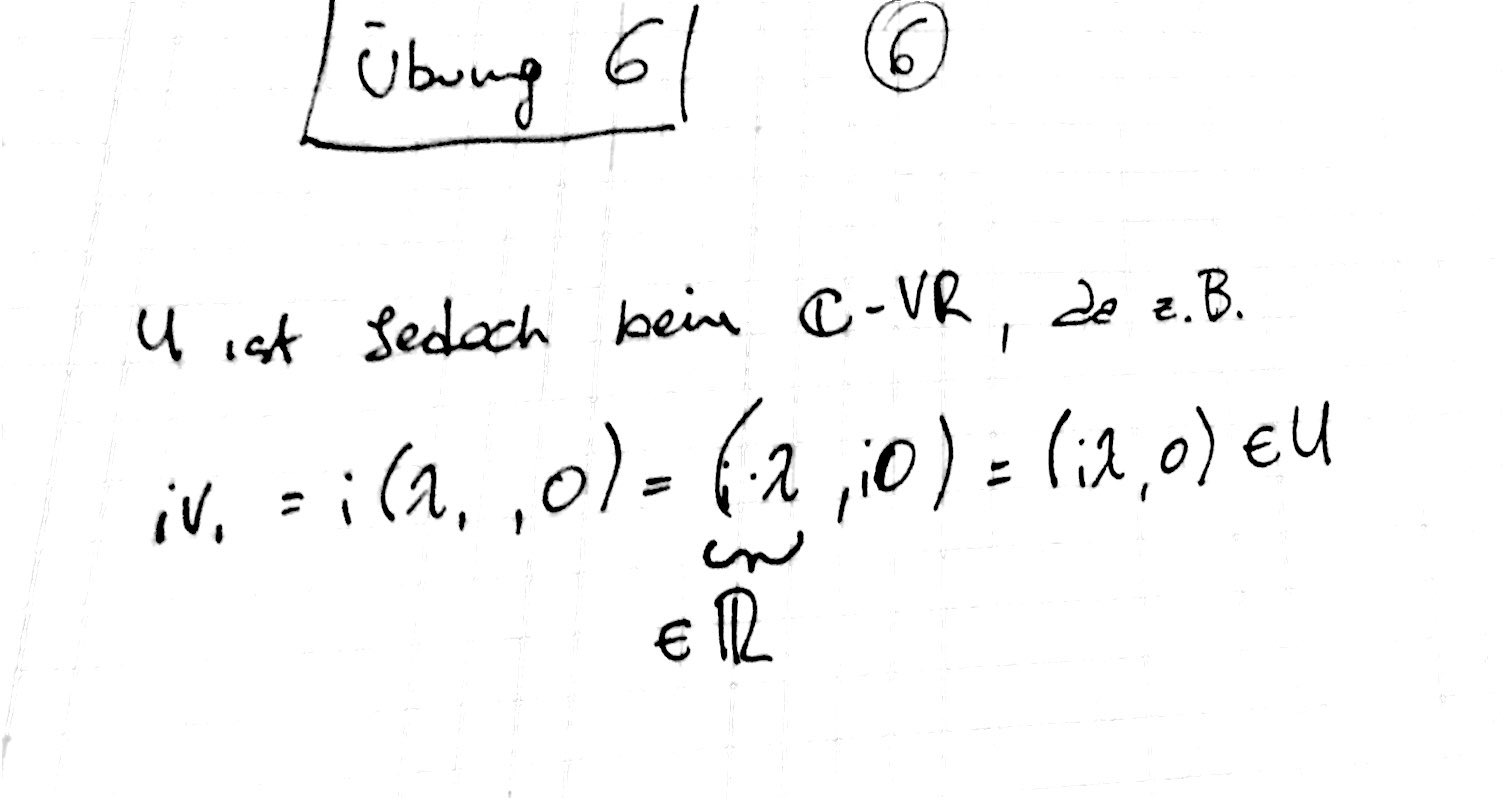 Übung 6 ⑥
U ist jedoch kein ℂ-VR, da z.B.
iv₁ = i(λ₁, 0) = (i·λ, i0) = (iλ, 0) ∈ U
∈ ℝ